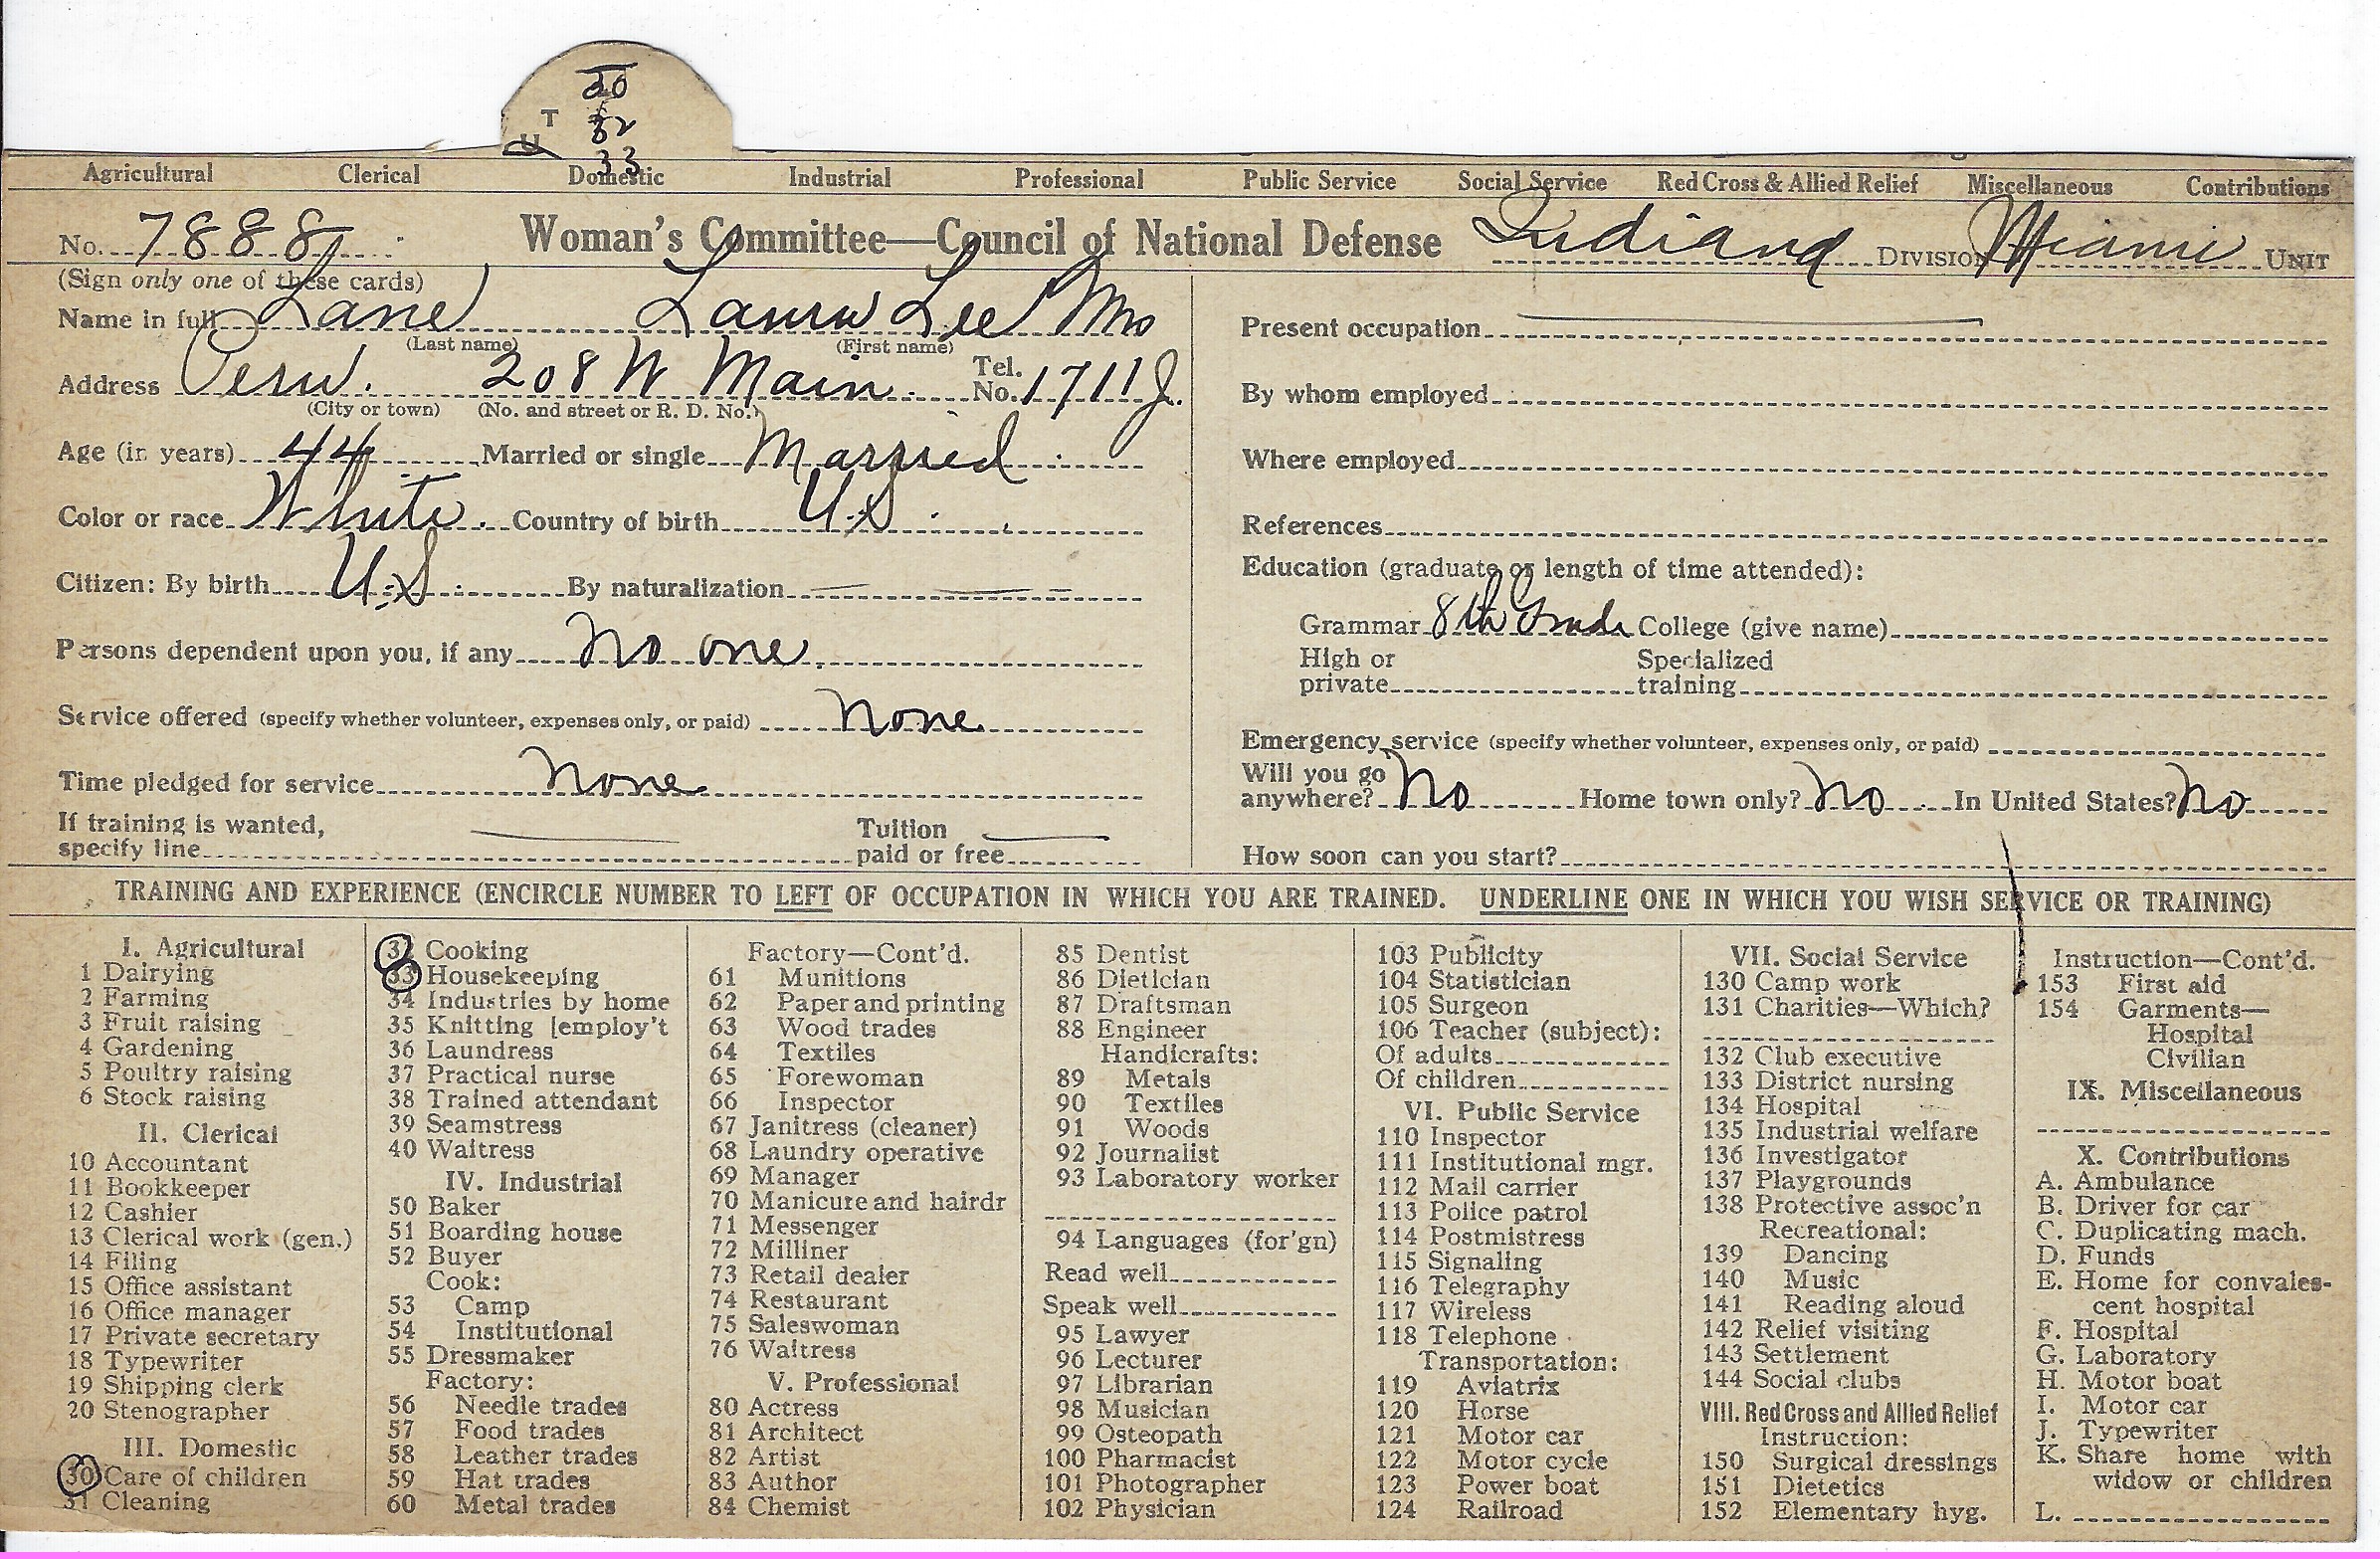 30
T 32
U 33
Agricultural Clerical Domestic Industrial Professional Public Service Social Service Red Cross & Allied Relief Miscellaneous Contributions
No. 7888 Woman's Committee—Council of National Defense Indiana DIVISION Miami UNIT
(Sign only one of these cards)
Name in full Lane Laura Lee Mrs
(Last name) (First name)
Address Peru. 208 W Main. Tel. No. 1711 J.
(City or town) (No. and street or R. D. No.)
Age (in years) 44 Married or single Married
Color or race White. Country of birth U.S.
Citizen: By birth U.S. By naturalization
Persons dependent upon you, if any no one.
Service offered (specify whether volunteer, expenses only, or paid) none
Time pledged for service none
If training is wanted, specify line Tuition paid or free
Present occupation
By whom employed
Where employed
References
Education (graduate or length of time attended):
Grammar 8th Grade College (give name)
High or private Specialized training
Emergency service (specify whether volunteer, expenses only, or paid)
Will you go anywhere? No Home town only? No In United States? No
How soon can you start?
TRAINING AND EXPERIENCE (ENCIRCLE NUMBER TO LEFT OF OCCUPATION IN WHICH YOU ARE TRAINED. UNDERLINE ONE IN WHICH YOU WISH SERVICE OR TRAINING)
I. Agricultural
1 Dairying
2 Farming
3 Fruit raising
4 Gardening
5 Poultry raising
6 Stock raising
II. Clerical
10 Accountant
11 Bookkeeper
12 Cashier
13 Clerical work (gen.)
14 Filing
15 Office assistant
16 Office manager
17 Private secretary
18 Typewriter
19 Shipping clerk
20 Stenographer
III. Domestic
30 Care of children
31 Cleaning
32 Cooking
33 Housekeeping
34 Industries by home
35 Knitting [employ't
36 Laundress
37 Practical nurse
38 Trained attendant
39 Seamstress
40 Waitress
IV. Industrial
50 Baker
51 Boarding house
52 Buyer
Cook:
53 Camp
54 Institutional
55 Dressmaker
Factory:
56 Needle trades
57 Food trades
58 Leather trades
59 Hat trades
60 Metal trades
Factory—Cont'd.
61 Munitions
62 Paper and printing
63 Wood trades
64 Textiles
65 Forewoman
66 Inspector
67 Janitress (cleaner)
68 Laundry operative
69 Manager
70 Manicure and hairdr
71 Messenger
72 Milliner
73 Retail dealer
74 Restaurant
75 Saleswoman
76 Waitress
V. Professional
80 Actress
81 Architect
82 Artist
83 Author
84 Chemist
85 Dentist
86 Dietician
87 Draftsman
88 Engineer
Handicrafts:
89 Metals
90 Textiles
91 Woods
92 Journalist
93 Laboratory worker
94 Languages (for'gn)
Read well
Speak well
95 Lawyer
96 Lecturer
97 Librarian
98 Musician
99 Osteopath
100 Pharmacist
101 Photographer
102 Physician
103 Publicity
104 Statistician
105 Surgeon
106 Teacher (subject):
Of adults
Of children
VI. Public Service
110 Inspector
111 Institutional mgr.
112 Mail carrier
113 Police patrol
114 Postmistress
115 Signaling
116 Telegraphy
117 Wireless
118 Telephone
Transportation:
119 Aviatrix
120 Horse
121 Motor car
122 Motor cycle
123 Power boat
124 Railroad
VII. Social Service
130 Camp work
131 Charities—Which?
132 Club executive
133 District nursing
134 Hospital
135 Industrial welfare
136 Investigator
137 Playgrounds
138 Protective assoc'n
Recreational:
139 Dancing
140 Music
141 Reading aloud
142 Relief visiting
143 Settlement
144 Social clubs
VIII. Red Cross and Allied Relief
Instruction:
150 Surgical dressings
151 Dietetics
152 Elementary hyg.
Instruction—Cont'd.
153 First aid
154 Garments—
Hospital
Civilian
IX. Miscellaneous
X. Contributions
A. Ambulance
B. Driver for car
C. Duplicating mach.
D. Funds
E. Home for convales-
cent hospital
F. Hospital
G. Laboratory
H. Motor boat
I. Motor car
J. Typewriter
K. Share home with
widow or children
L.